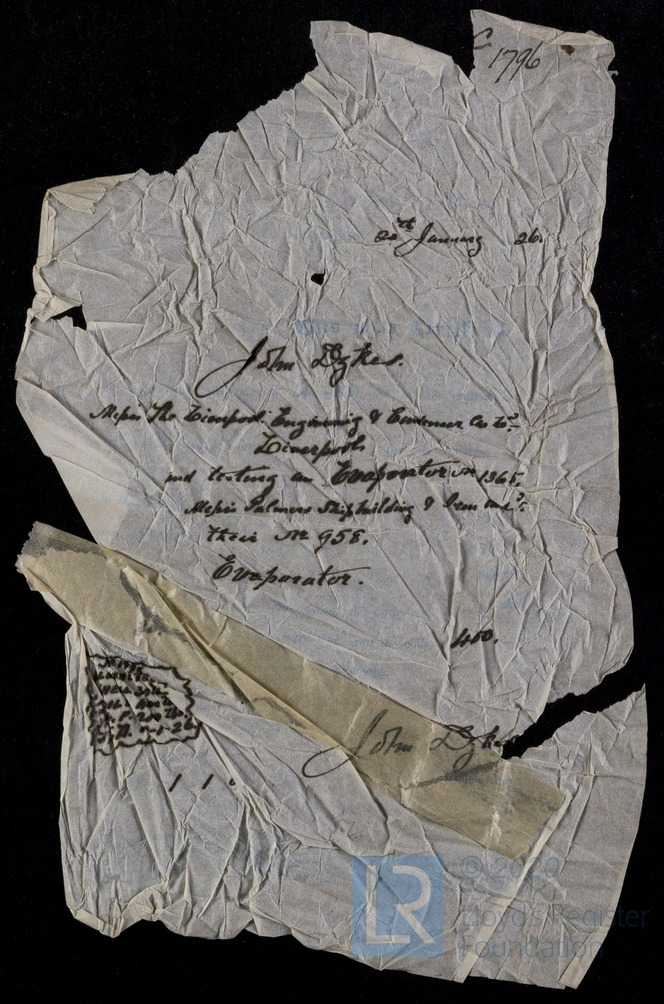 C 1796
20th January 26.
John Dykes.
Messrs The Liverpool Engineering & Condenser Co Ltd
Liverpool
and testing an Evaporator No 1365,
Messrs Palmers Shipbuilding & Iron
their No 958.
Evaporator.
400.
John Dykes
1 1 0
LR
© 2020
Lloyd's Register
Foundation